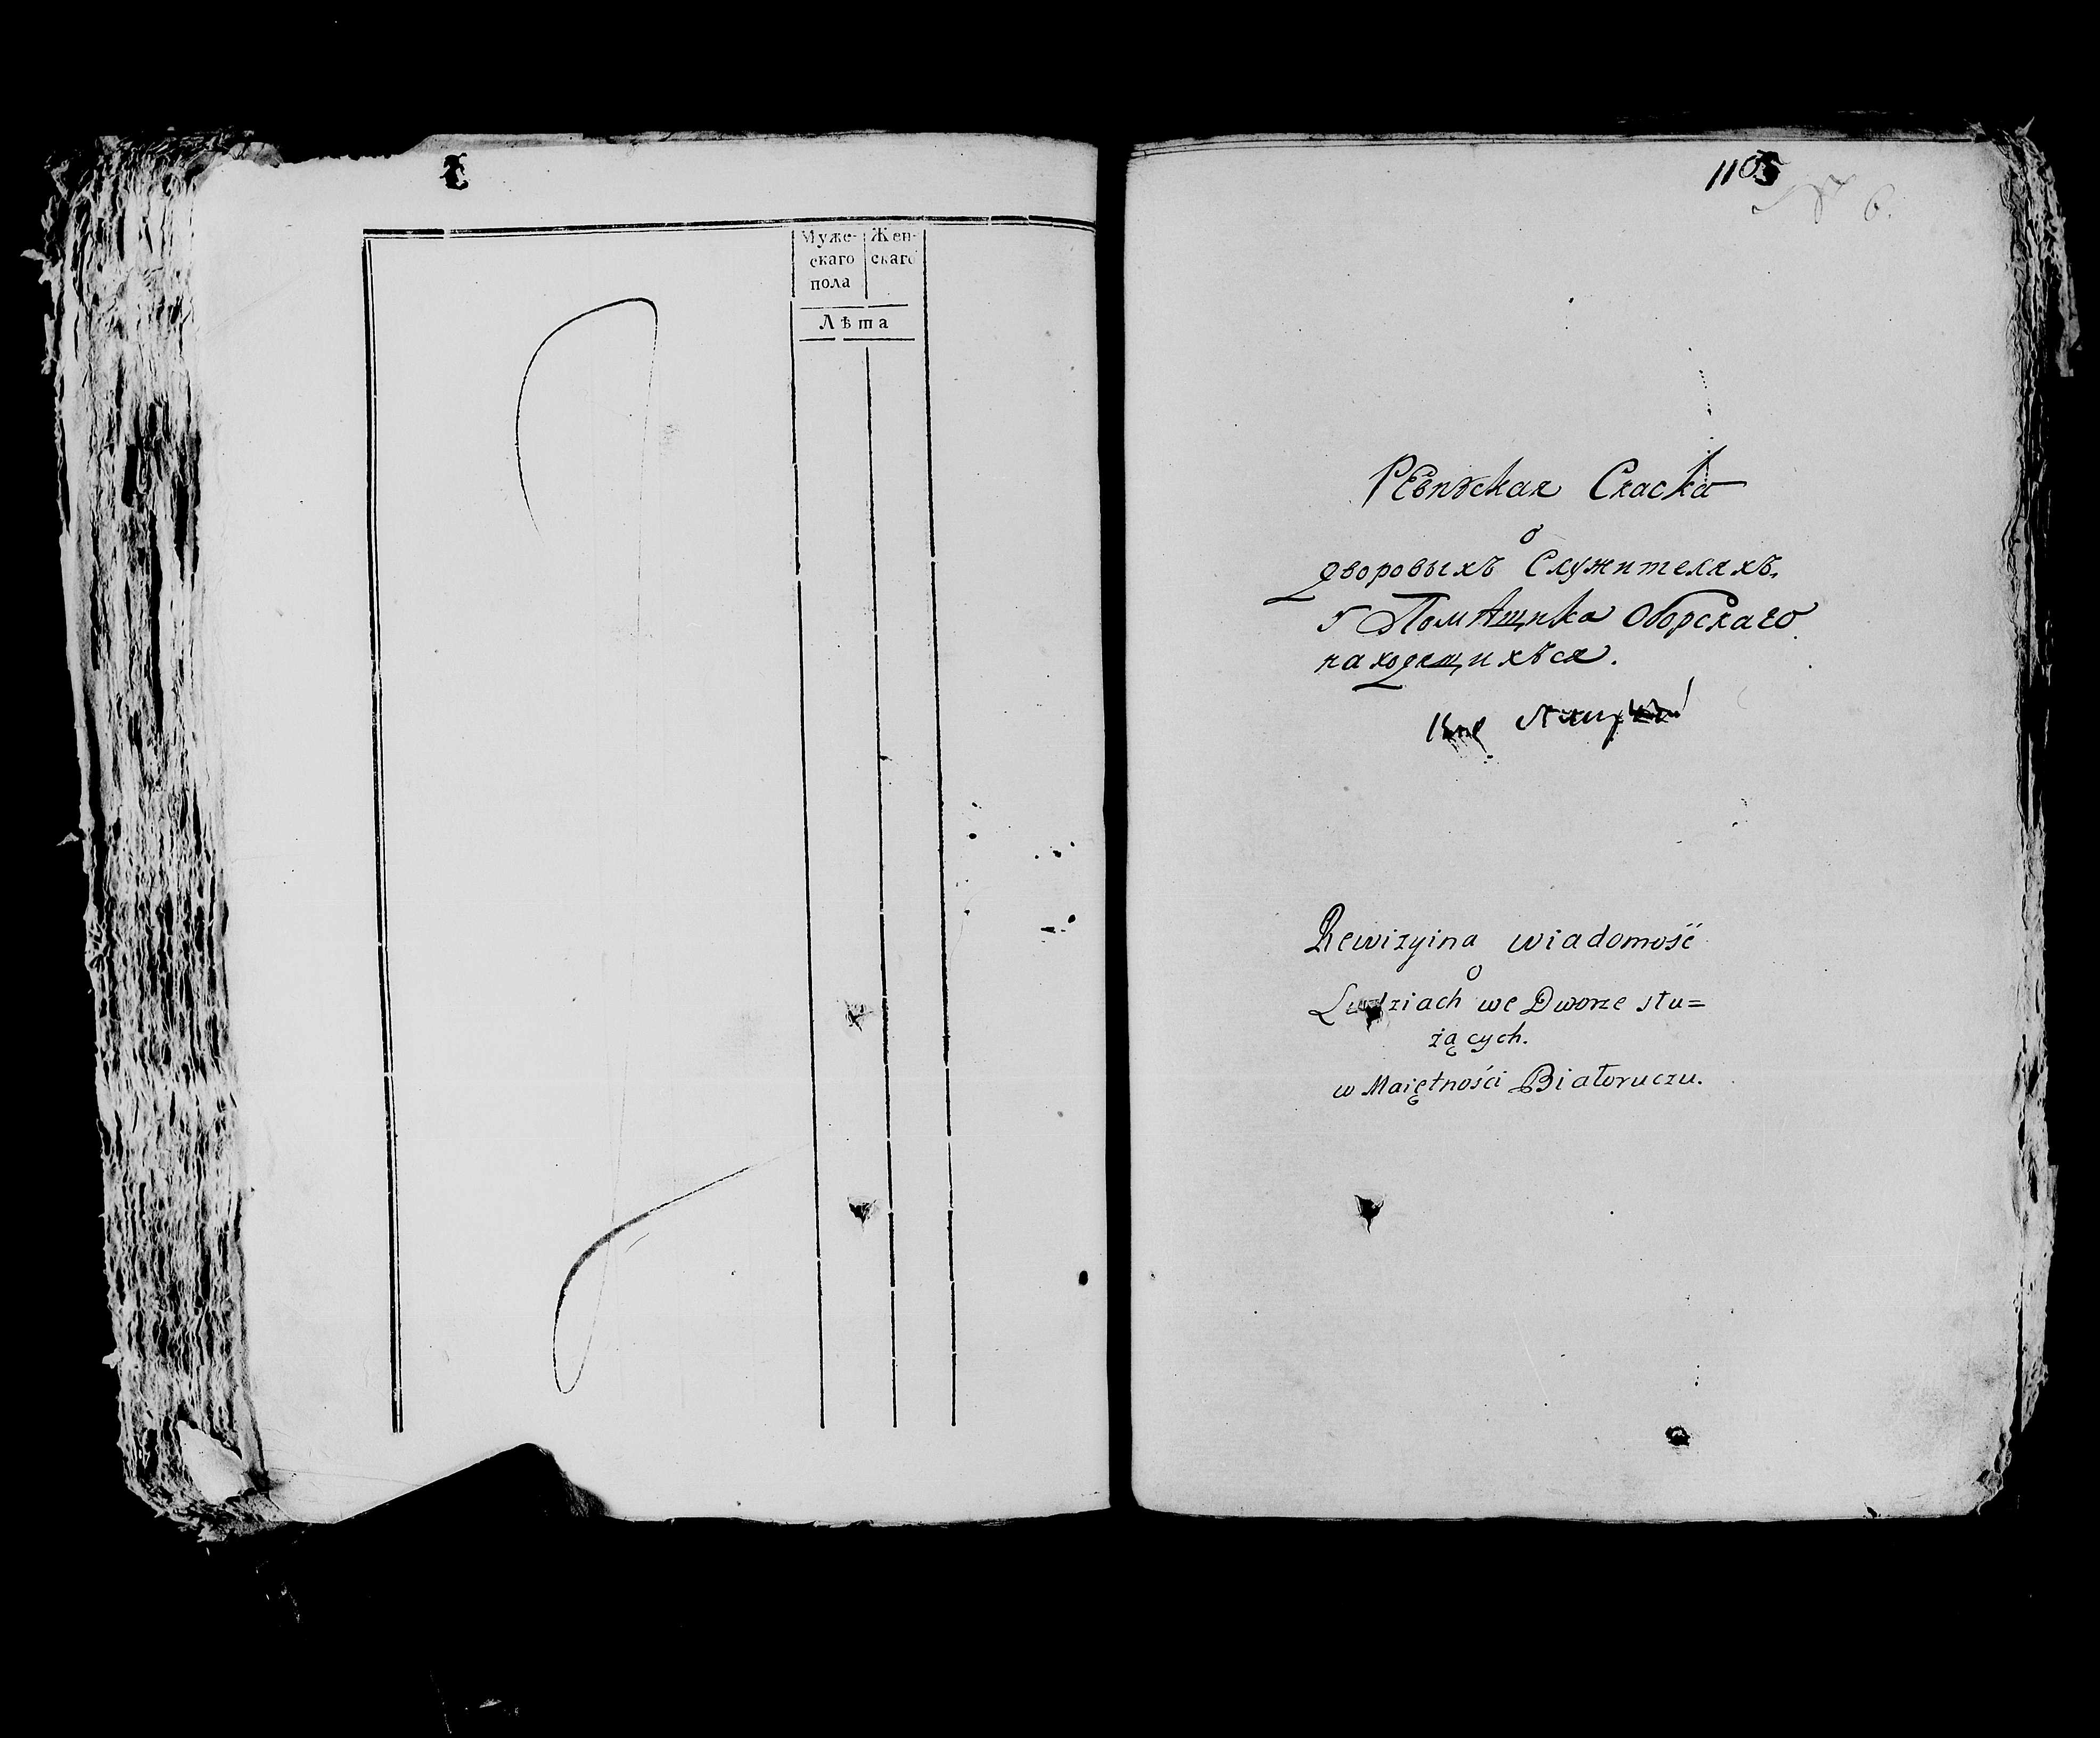 Муже-
скаго
пола
Жен-
скаго
Лѣта
1105
6.
РЕвизская Скаска
о
дворовыхъ Служителяхъ
у Помѣщика Оборскаго
находящихъся.
Rewizyina wiadomość
o
Ludziach we Dworze słu=
żących.
w Maiętności Białoruczu.